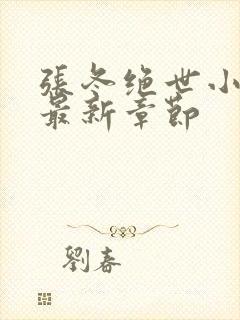 張冬绝世小
最新章節
劉春